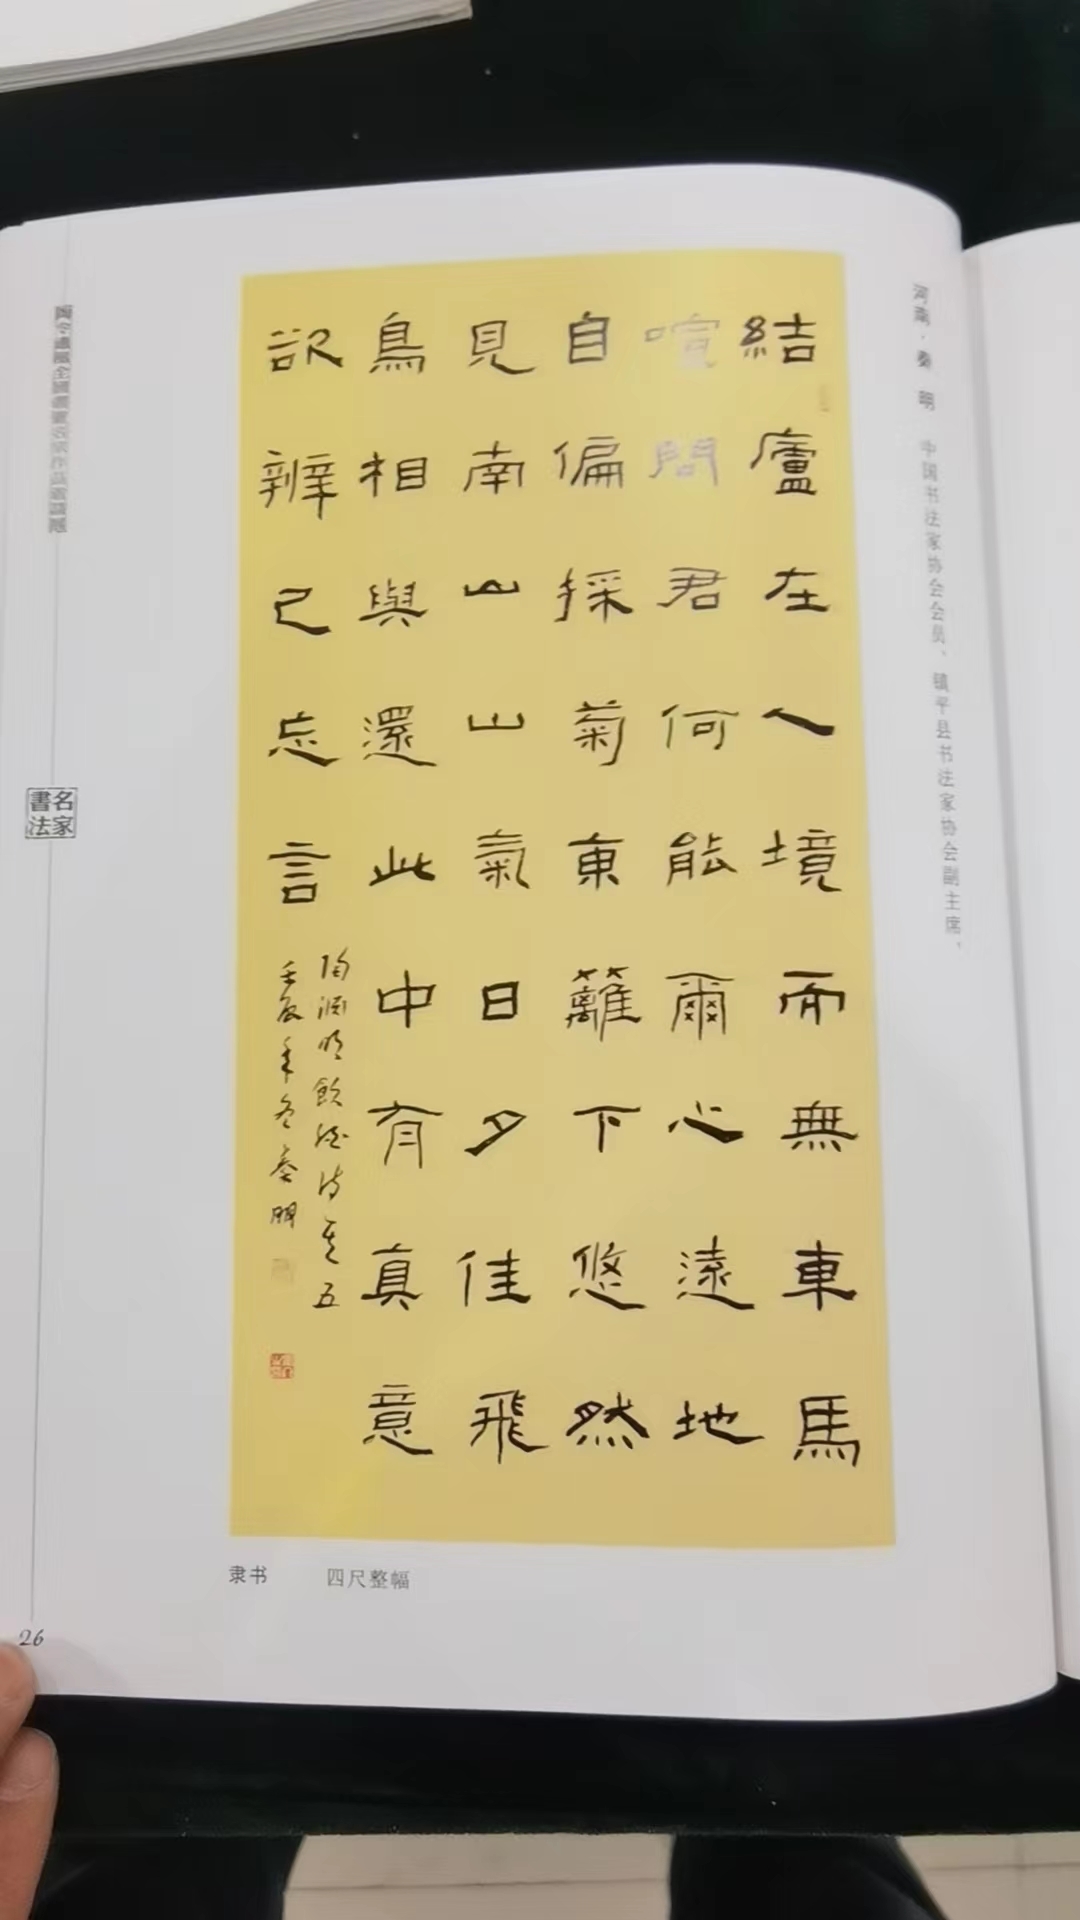 河南·秦 明 中国书法家协会会员、镇平县书法家协会副主席、
結廬在人境而無車馬
喧問君何能爾心遠地
自偏採菊東蘺下悠然
見南山山氣日夕佳飛
鳥相與還此中有真意
欲辨己忘言
陶渊明飲酒诗其五
壬辰年冬秦明
隶书 四尺整幅
名家
書法
26